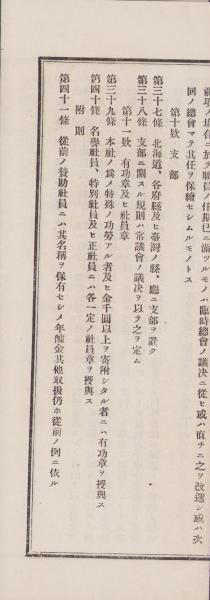 前項ノ場合ニ於テ職員ノ任期已ニ満ツルモノハ臨時總會ノ議決ニ從ヒ或ハ直チニ之ヲ改選シ或ハ次
回ノ總會マテ其任ヲ保續セシムルモノトス
第十欵 支部
第三十七條 北海道、各府縣及ヒ臺灣ノ縣、廳ニ支部ヲ置ク
第三十八條 支部ニ關スル規則ハ常議會ノ議決ヲ以テ之ヲ定ム
第十一欵 有功章及ヒ社員章
第三十九條 本社ノ爲メ特殊ノ功勞アル者及ヒ金千圓以上ヲ寄附シタル者ニハ有功章ヲ授與ス
第四十條 名譽社員、特別社員及ヒ正社員ニハ各一定ノ社員章ヲ授與ス
附則
第四十一條 從前ノ賛助社員ニハ其名稱ヲ保有セシメ年醵金其他取扱仍ホ從前ノ例ニ依ル